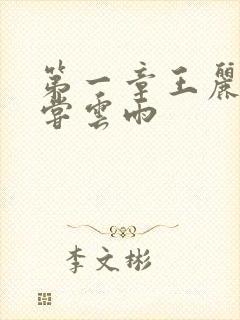 第一章王麗
嘗雲雨
李文彬